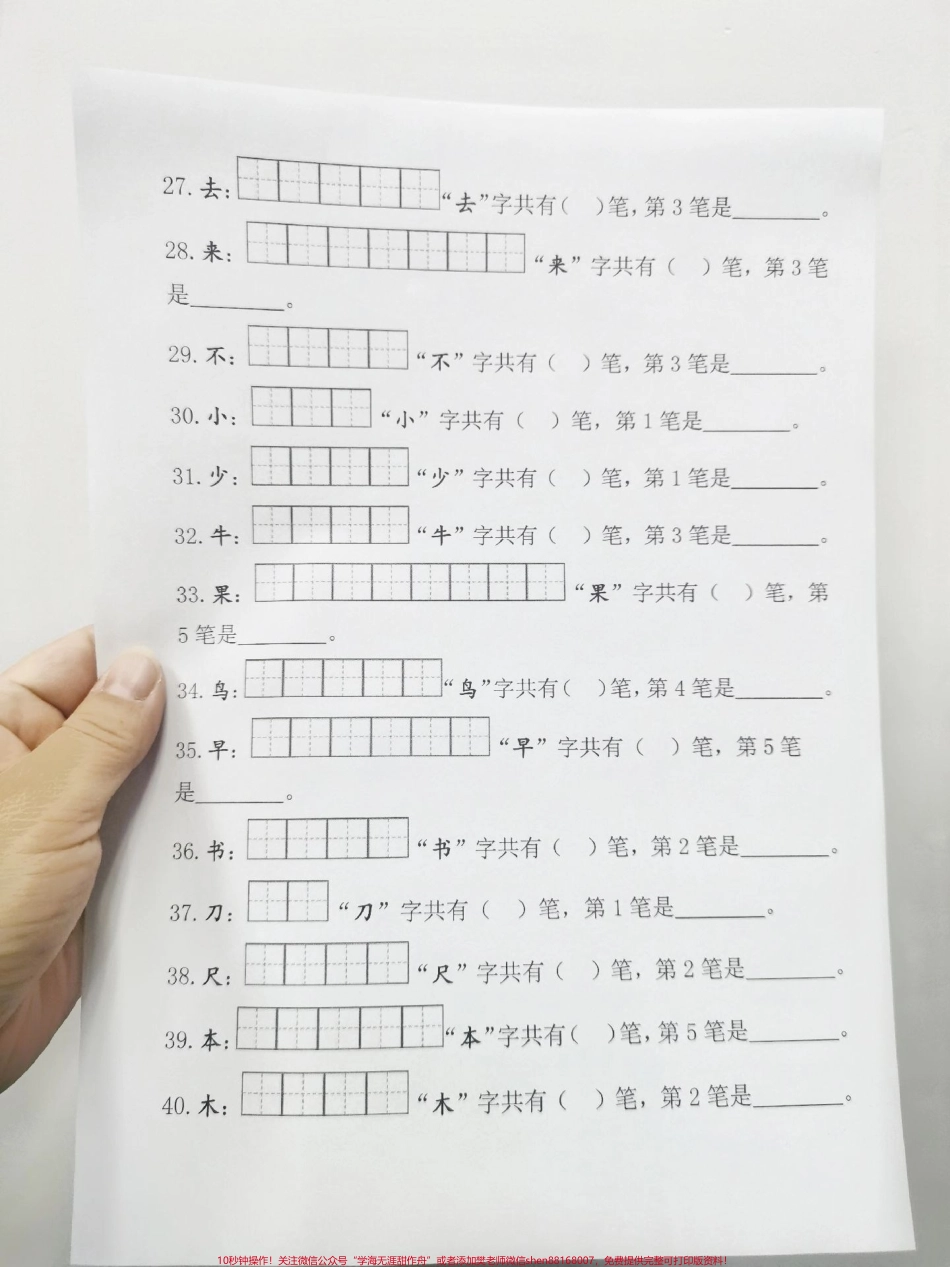 27. 去: “去”字共有( )笔,第3笔是________。
28. 来: “来” 字共有( )笔,第3笔
是________。
29. 不: “不” 字共有( )笔,第3笔是________。
30. 小: “小” 字共有( )笔,第1笔是________。
31. 少: “少” 字共有( )笔,第1笔是________。
32. 牛: “牛” 字共有( )笔,第3笔是________。
33. 果: “果” 字共有( )笔,第
5笔是________。
34. 鸟: “鸟”字共有( )笔,第4笔是________。
35. 早: “早” 字共有( )笔,第5笔
是________。
36. 书: “书” 字共有( )笔,第2笔是________。
37. 刀: “刀” 字共有( )笔,第1笔是________。
38. 尺: “尺” 字共有( )笔,第2笔是________。
39. 本: “本”字共有( )笔,第5笔是________。
40. 木: “木” 字共有( )笔,第2笔是________。
10秒钟操作!关注微信公众号“学海无涯甜作舟”或者添加樊老师微信shen88168007,免费提供完整可打印版资料!